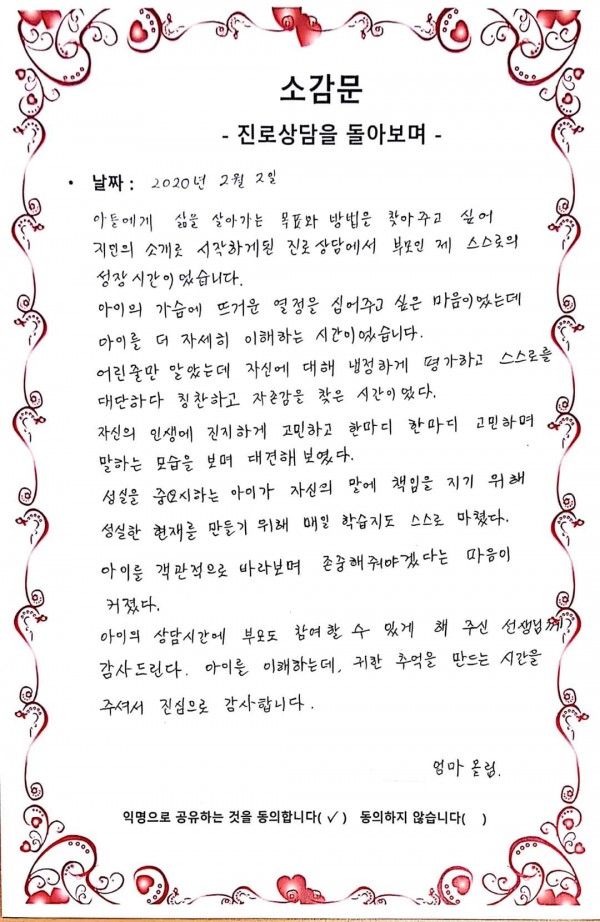 소감문
- 진로상담을 돌아보며 -
• 날짜 : 2020년 2월 2일
아들에게 삶을 살아가는 목표와 방법을 찾아주고 싶어
지인의 소개로 시작하게된 진로상담에서 부모인 제 스스로의
성장시간이었습니다.
아이의 가슴에 뜨거운 열정을 심어주고 싶은 마음이었는데
아이를 더 자세히 이해하는 시간이였습니다.
어린줄만 알았는데 자신에 대해 냉정하게 평가하고 스스로를
대단하다 칭찬하고 자존감을 찾은 시간이었다.
자신의 인생에 진지하게 고민하고 한마디 한마디 고민하며
말하는 모습을 보며 대견해보였다.
성실을 중요시하는 아이가 자신의 말에 책임을 지기 위해
성실한 현재를 만들기 위해 매일 학습지도 스스로 마쳤다.
아이를 객관적으로 바라보며 존중해줘야겠다는 마음이
커졌다.
아이의 상담시간에 부모도 참여할 수 있게 해 주신 선생님께
감사드린다. 아이를 이해하는데, 귀한 추억을 만드는 시간을
주셔서 진심으로 감사합니다.
엄마 올림.
익명으로 공유하는 것을 동의합니다( ✓ ) 동의하지 않습니다( )